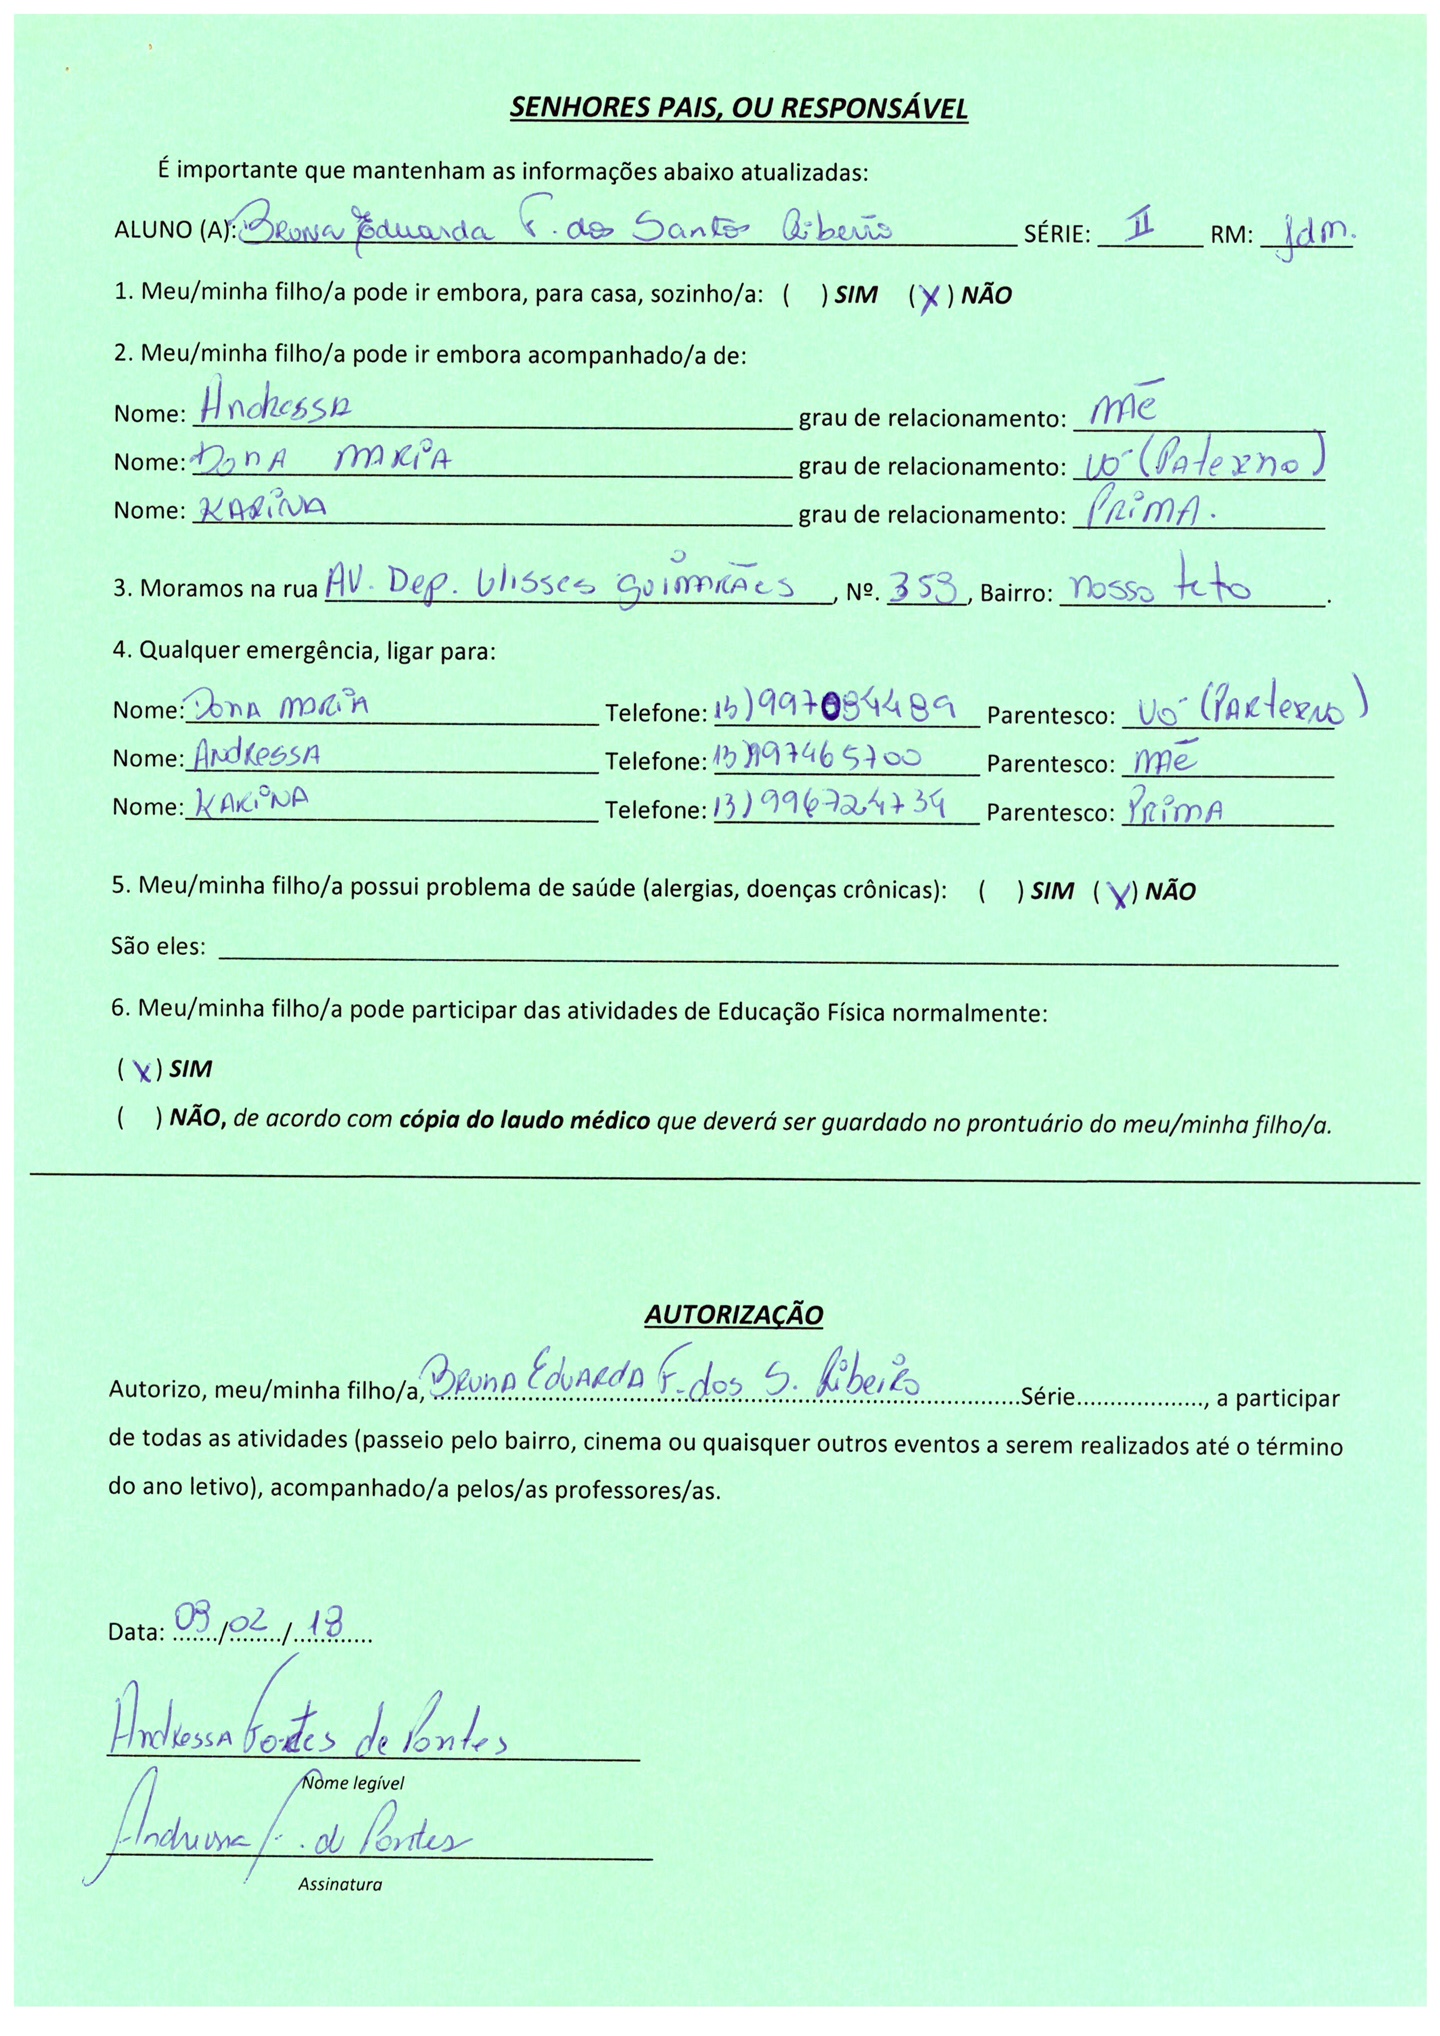 SENHORES PAIS, OU RESPONSÁVEL
É importante que mantenham as informações abaixo atualizadas:
ALUNO (A): Bruna Eduarda F. dos Santos Ribeiro SÉRIE: II RM: Jdm.
1. Meu/minha filho/a pode ir embora, para casa, sozinho/a: ( ) SIM (X) NÃO
2. Meu/minha filho/a pode ir embora acompanhado/a de:
Nome: Andressa grau de relacionamento: mãe
Nome: Dona Maria grau de relacionamento: vó (Paterno)
Nome: Karina grau de relacionamento: Prima.
3. Moramos na rua AV. Dep. Ulisses Guimarães, Nº. 353, Bairro: nosso teto.
4. Qualquer emergência, ligar para:
Nome: Dona Maria Telefone: 13)997084489 Parentesco: vó (Parterno)
Nome: Andressa Telefone: 13)997465700 Parentesco: mãe
Nome: Karina Telefone: 13)996724734 Parentesco: Prima
5. Meu/minha filho/a possui problema de saúde (alergias, doenças crônicas): ( ) SIM (X) NÃO
São eles:
6. Meu/minha filho/a pode participar das atividades de Educação Física normalmente:
(X) SIM
( ) NÃO, de acordo com cópia do laudo médico que deverá ser guardado no prontuário do meu/minha filho/a.
AUTORIZAÇÃO
Autorizo, meu/minha filho/a, Bruna Eduarda F. dos S. Ribeiro Série..................., a participar
de todas as atividades (passeio pelo bairro, cinema ou quaisquer outros eventos a serem realizados até o término
do ano letivo), acompanhado/a pelos/as professores/as.
Data: 09/02/18
Andressa Fortes de Pontes
Nome legível
Andressa F. de Pontes
Assinatura